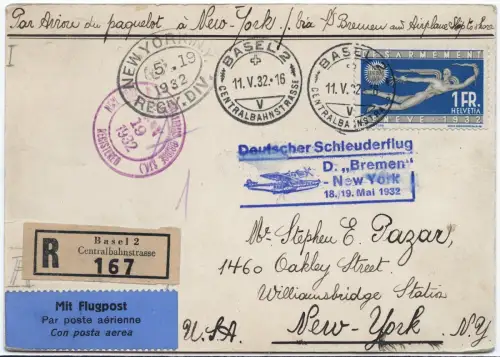 Par Avion du paquebot à New-York / via D/ Bremen and Airplane Ship to shore
NEW YORK, N.Y.
5-19
1932
REG'Y. DIV.
BASEL 2
11.V.32-16
V
CENTRALBAHNSTRASSE
BASEL 2
11.V.32
CENTRALBAHNSTRASSE
1 FR.
HELVETIA
1932
REGISTERED
19
1932
Deutscher Schleuderflug
D. „Bremen"
- New York
18./19. Mai 1932
I
1
R
Basel 2
Centralbahnstrasse
167
Mr. Stephen E. Pazar,
1460 Oakley Street
Williamsbridge Statio
New-York N.Y.
U.S.A.
Mit Flugpost
Par poste aérienne
Con posta aerea